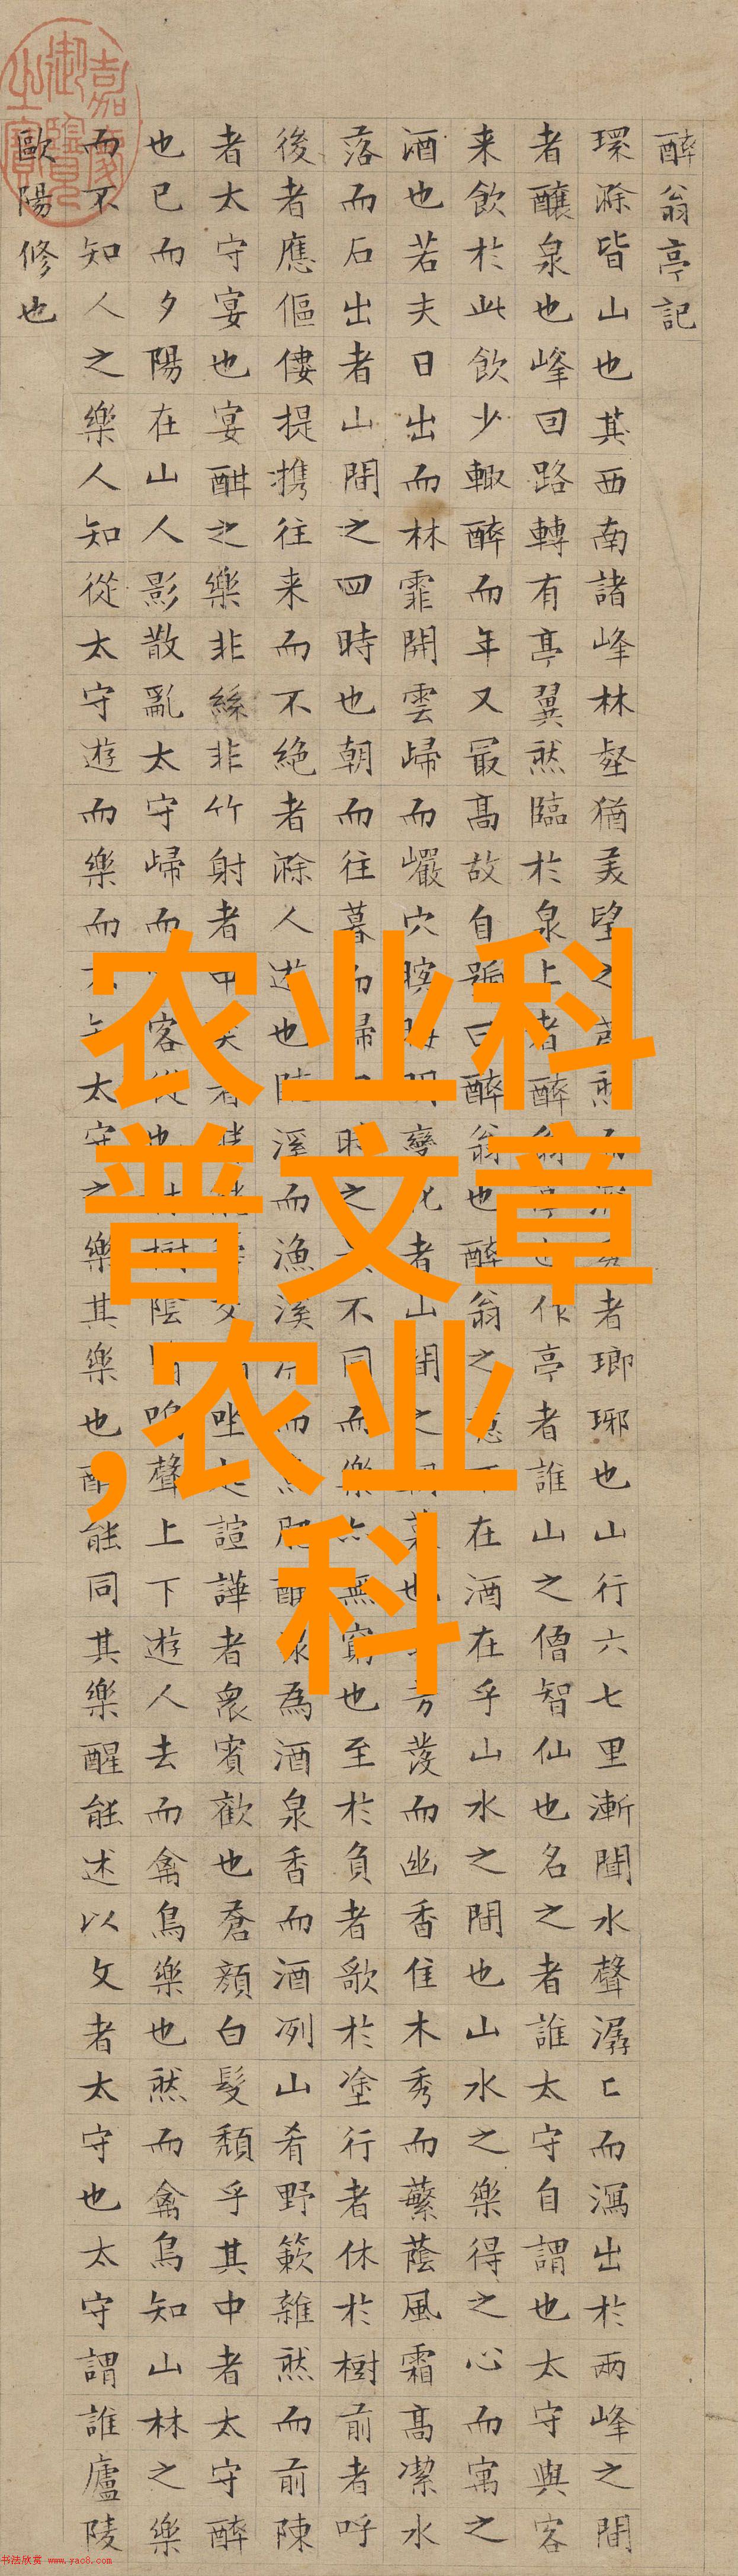 醉翁亭記
環滁皆山也其西南諸峰林壑猶美望之蔚然而深秀者瑯琊也山行六七里漸聞水聲潺〻而瀉出於兩峰之間
者釀泉也峰回路轉有亭翼然臨於泉上者醉翁亭也作亭者誰山之僧智仙也名之者誰太守自謂也太守與客
来飲於此飲少輙醉而年又最高故自號曰醉翁也醉翁之意不在酒在乎山水之間也山水之樂得之心而寓之
酒也若夫日出而林霏開雲歸而巖穴暝晦明變化者山間之朝暮也芳發而幽香佳木秀而蘩蔭風霜高潔水
落而石出者山間之四時也朝而往暮而歸時之不同而樂亦無窮也至於負者歌於塗行者休於樹前者呼
後者應傴僂提携往来而不絶者滁人遊也臨溪而漁溪而肥釀泉為酒泉香而酒冽山肴野簌雜然而前陳
者太守宴也宴酣之樂非絲非竹射者中者坐起諠譁者衆賓歡也蒼顔白髮頽乎其中者太守醉
也已而夕陽在山人影散亂太守歸而客從也樹陰鳴聲上下遊人去而禽鳥樂也然而禽鳥知山林之樂
而不知人之樂人知從太守遊而樂而不知太守之樂其樂也醉能同其樂醒能述以文者太守也太守謂誰廬陵
歐陽修也
農业科
普文章
,农业
科
书法欣赏 www.yac8.com